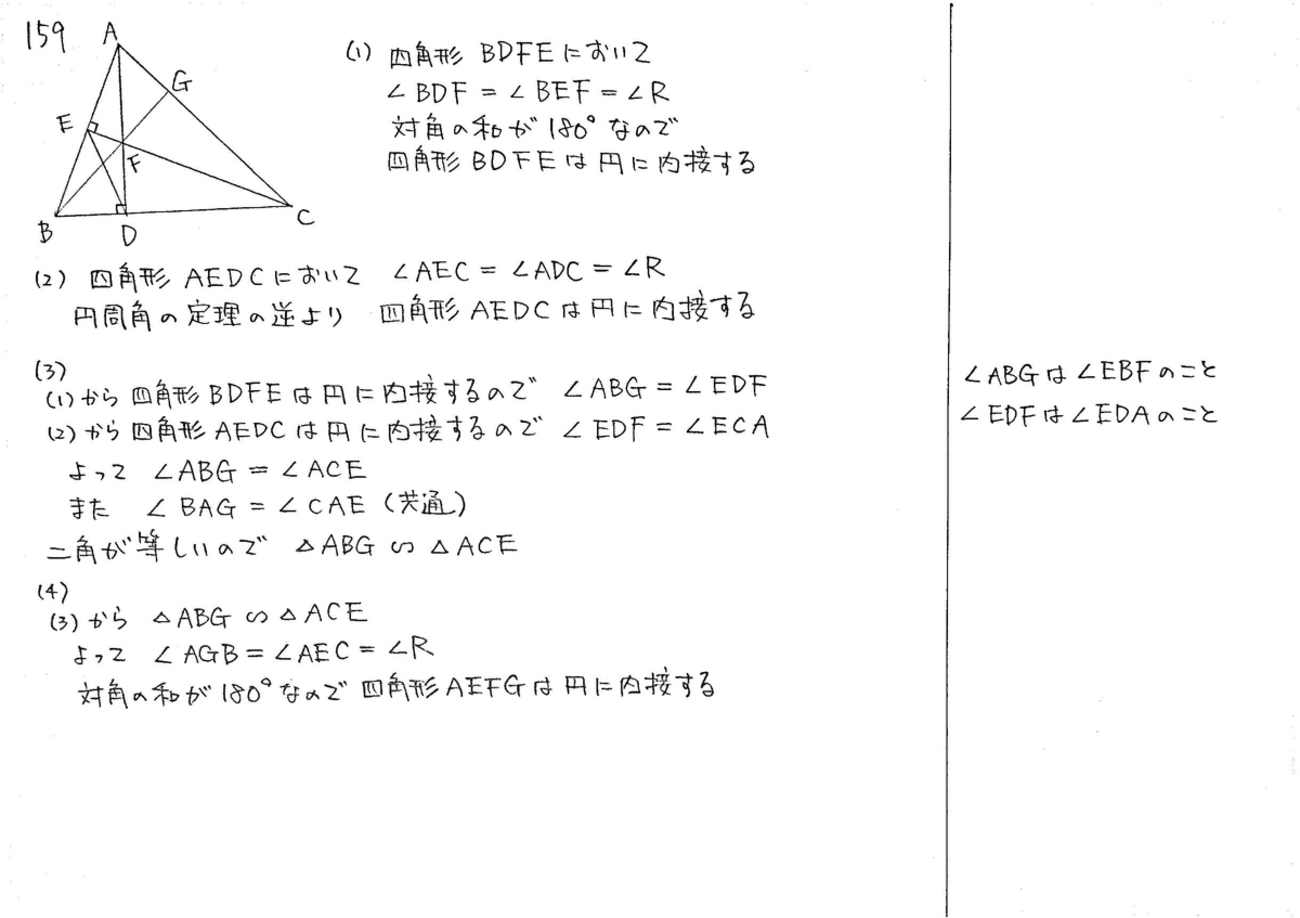 159
A
G
E
F
B
D
C
(1) 四角形 BDFEにおいて
∠BDF = ∠BEF = ∠R
対角の和が180°なので
四角形BDFEは円に内接する
(2) 四角形AEDCにおいて ∠AEC = ∠ADC = ∠R
円周角の定理の逆より 四角形AEDCは円に内接する
(3)
(1)から四角形BDFEは円に内接するので ∠ABG = ∠EDF
(2)から四角形AEDCは円に内接するので ∠EDF = ∠ECA
よって ∠ABG = ∠ACE
また ∠BAG = ∠CAE (共通)
二角が等しいので △ABG ∽ △ACE
(4)
(3)から △ABG ∽ △ACE
よって ∠AGB = ∠AEC = ∠R
対角の和が180°なので四角形AEFGは円に内接する
∠ABGは∠EBFのこと
∠EDFは∠EDAのこと